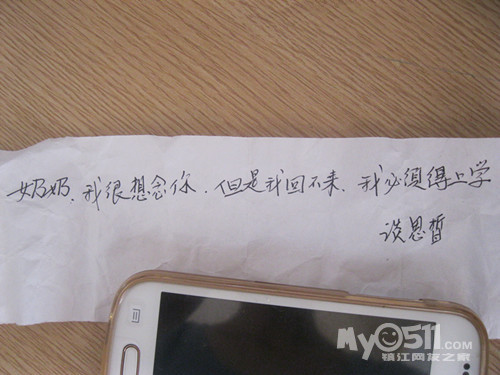 奶奶、我很想念你、但是我回不来、我必须得上学
谈思哲
My0511.com
镇江网友之家